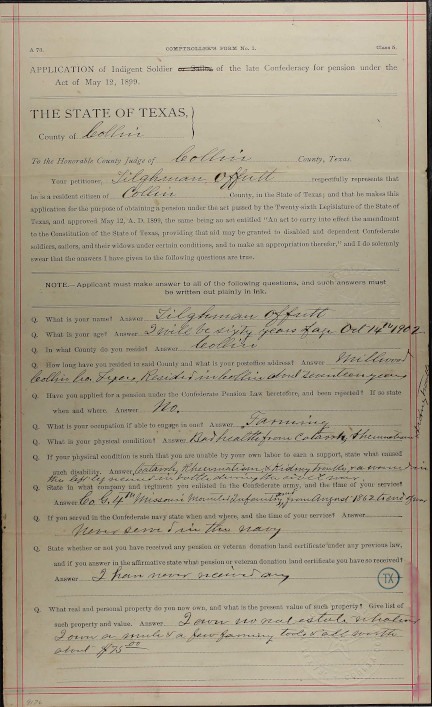 A 76. COMPTROLLER'S FORM No. 2. Class B.
APPLICATION of Indigent Soldier or Sailor of the late Confederacy for pension under the
Act of May 12, 1899.
THE STATE OF TEXAS,
County of Collin
To the Honorable County Judge of Collin County, Texas.
Your petitioner, Tilghman Offutt respectfully represents that
he is a resident citizen of Collin County, in the State of Texas; and that he makes this
application for the purpose of obtaining a pension under the act passed by the Twenty-sixth Legislature of the State of
Texas, and approved May 12, A. D. 1899, the same being an act entitled "An act to carry into effect the amendment
to the Constitution of the State of Texas, providing that aid may be granted to disabled and dependent Confederate
soldiers, sailors, and their widows under certain conditions, and to make an appropriation therefor," and I do solemnly
swear that the answers I have given to the following questions are true.
NOTE.—Applicant must make answer to all of the following questions, and such answers must
be written out plainly in ink.
Q. What is your name? Answer Tilghman Offutt
Q. What is your age? Answer I will be sixty years of age Oct 14th 1902
Q. In what County do you reside? Answer Collin
Q. How long have you resided in said County and what is your postoffice address? Answer Millwood
Collin Co. Texas Resided in Collin about seventeen years
Q. Have you applied for a pension under the Confederate Pension Law heretofore, and been rejected? If so state
when and where. Answer No.
Q. What is your occupation if able to engage in one? Answer Farming
Q. What is your physical condition? Answer Bad health from Catarrh, & rheumatism
Q. If your physical condition is such that you are unable by your own labor to earn a support, state what caused
such disability. Answer Catarrh, Rheumatism, & Kidney trouble, & a wound in
the left leg received in battle during the civil war.
Q. State in what company and regiment you enlisted in the Confederate army, and the time of your service?
Answer Co G. 4th Missouri Mounted Infantry from August 1862 to end of war
Q. If you served in the Confederate navy state when and where, and the time of your service? Answer
Never served in the navy
Q. State whether or not you have received any pension or veteran donation land certificate under any previous law,
and if you answer in the affirmative state what pension or veteran donation land certificate you have received?
Answer I have never received any
TX
Q. What real and personal property do you now own, and what is the present value of such property? Give list of
such property and value. Answer I own no real estate whatever
I own a mule & a few farming tools & all worth
about $75.00